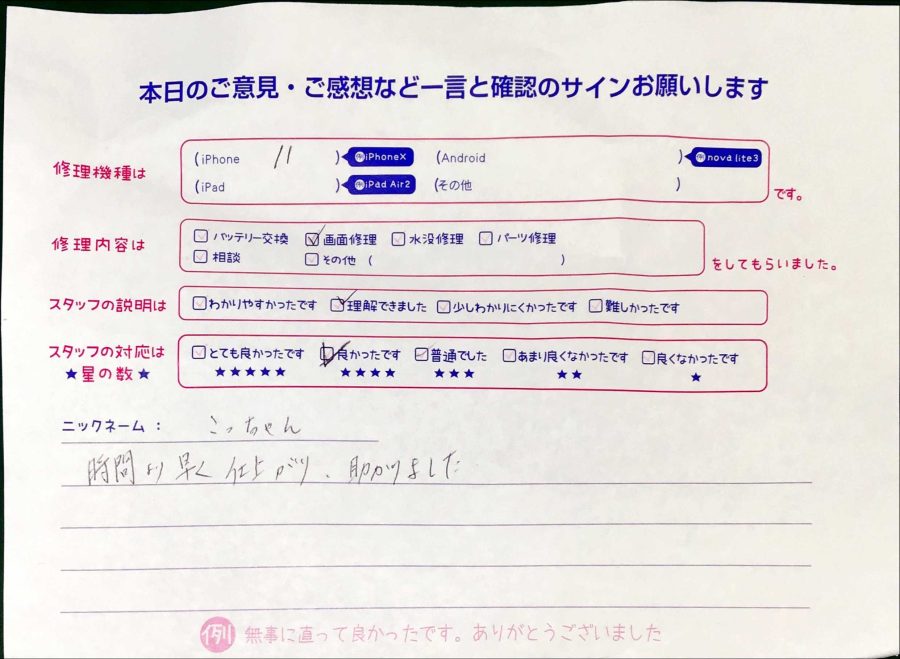 本日のご意見・ご感想など一言と確認のサインお願いします
修理機種は (iPhone 11 ) iPhoneX (Android ) nova lite3
(iPad ) iPad Air2 (その他 ) です。
修理内容は バッテリー交換 画面修理 水没修理 パーツ修理
相談 その他 ( ) をしてもらいました。
スタッフの説明は わかりやすかったです 理解できました 少しわかりにくかったです 難しかったです
スタッフの対応は とても良かったです 良かったです 普通でした あまり良くなかったです 良くなかったです
★星の数★ ★★★★★ ★★★★ ★★★ ★★ ★
ニックネーム: こっちゃん
時間より早く仕上がり、助かりました
例 無事に直って良かったです。ありがとうございました